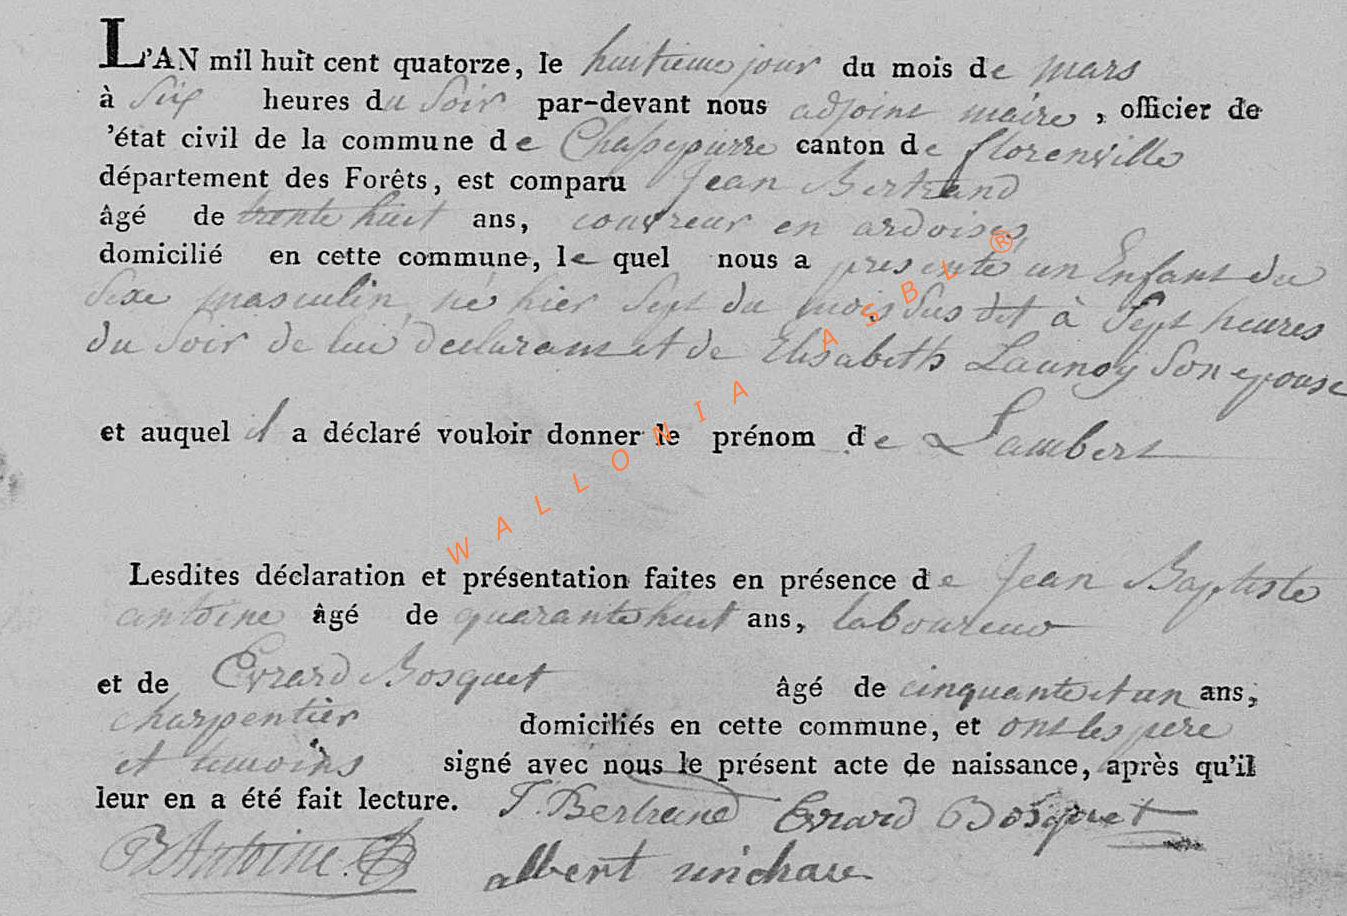 L'AN mil huit cent quatorze, le huitieme jour du mois de mars
à six heures du soir par-devant nous adjoint maire, officier de
'état civil de la commune de Chassepierre canton de florenville
département des Forêts, est comparu Jean Bertrand
âgé de trente huit ans, couvreur en ardoises,
domicilié en cette commune, le quel nous a presenté un Enfant du
Sexe masculin, né hier Sept du mois Sus dit à Sept heures
du Soir de lui déclarant et de Elisabeth Launoy Son epouse
et auquel il a déclaré vouloir donner le prénom de Lambert
Lesdites déclaration et présentation faites en présence de Jean Baptiste
antoine âgé de quarante huit ans, laboureur
et de Evrard Bosquet âgé de cinquante et un ans,
charpentier domiciliés en cette commune, et ont les pere
et temoins signé avec nous le présent acte de naissance, après qu'il
leur en a été fait lecture. J. Bertrand Evrard Bosquet
Antoine. albert
WALLONIA ASBL ®